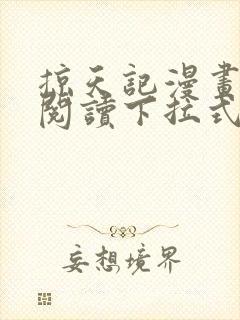 掠天記漫畫
閱讀下拉式
妄想境界